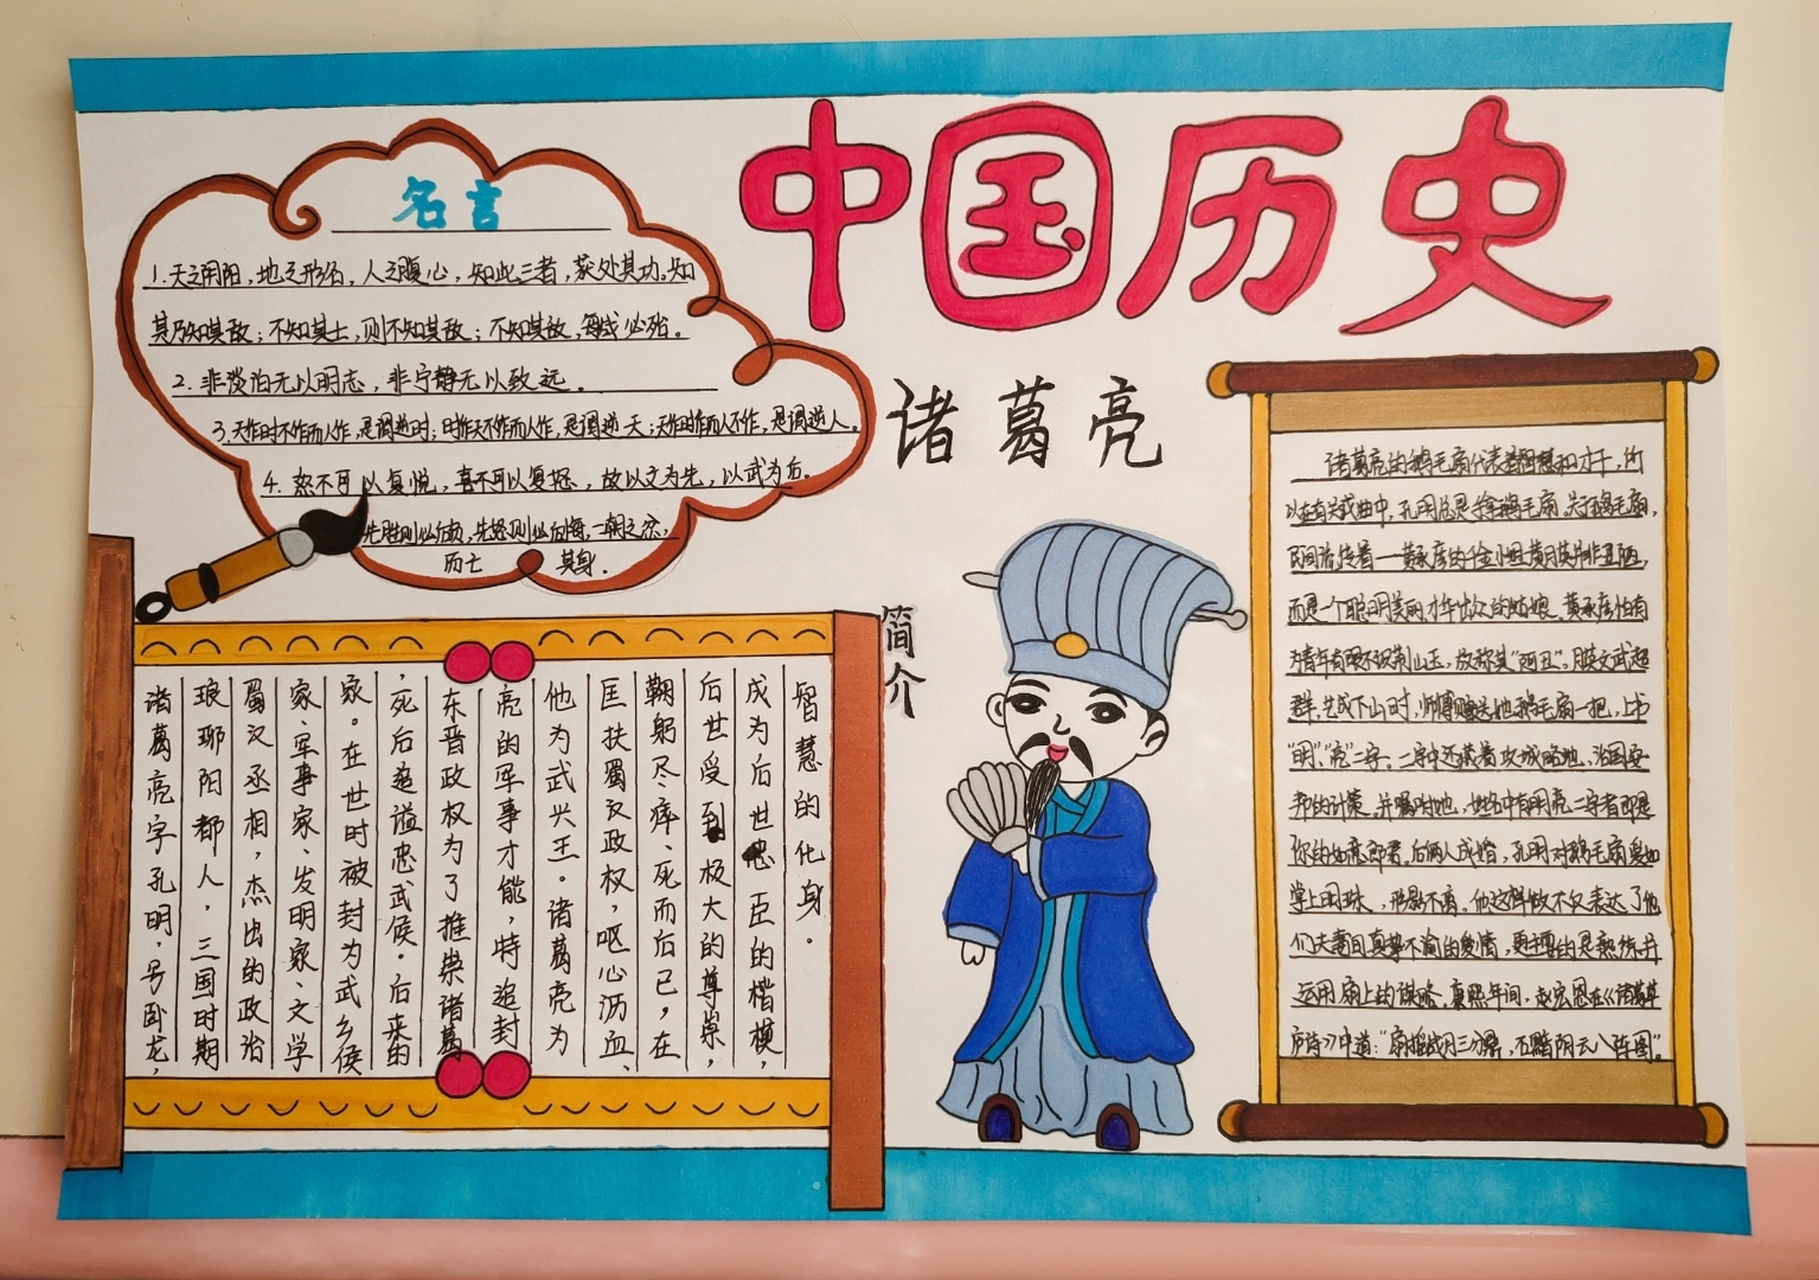 中国历史
名言
1.天之阴阳,地之形名,人之腹心,知此三者,获处其功。知
其乃知其敌;不知其士,则不知其敌;不知其敌,每战必殆。
2.非淡泊无以明志,非宁静无以致远。
3.天作时不作而人作,是谓逆时;时作天不作而人作,是谓逆天;天作时作而人不作,是谓逆人。
4.怒不可以复悦,喜不可以复怒,故以文为先,以武为后。
先胜则必后负,先怒则必后悔,一朝之忿,
历亡 其身.
诸葛亮
简介
诸葛亮字孔明,号卧龙,
琅琊阳都人,三国时期
蜀汉丞相,杰出的政治
家、军事家、发明家、文学
家。在世时被封为武乡侯
,死后追谥忠武侯。后来的
东晋政权为了推崇诸葛
亮的军事才能,特追封
他为武兴王。诸葛亮为
匡扶蜀汉政权,呕心沥血、
鞠躬尽瘁、死而后已,在
后世受到极大的尊崇,
成为后世忠臣的楷模,
智慧的化身.
诸葛亮的鹅毛扇代表着智慧和才干,所
以在有关戏曲中,孔明总是手拿鹅毛扇。关于鹅毛扇,
民间流传着——黄承彦的千金小姐黄月英并非丑陋,
而是一个聪明美丽才华出众的姑娘。黄承彦怕有
为青年有眼不识荆山玉,故称其"阿丑"。月英文武超
群,艺成下山时,师傅赠送她鹅毛扇一把,上书
"明"、"亮"二字。二字中还藏着攻城略地、治国安
邦的计策。并嘱咐她,姓名中有明亮二字者即是
你的如意郎君。后俩人成婚,孔明对鹅毛扇爱如
掌上明珠,形影不离。他这样做不仅表达了他
们夫妻间真挚不渝的爱情,更主要的是熟练并
运用扇上的谋略。康熙年间,赵宏恩在《诸葛草
庐诗》中道:"扇摇战月三分鼎,石黯阴云八阵图"。